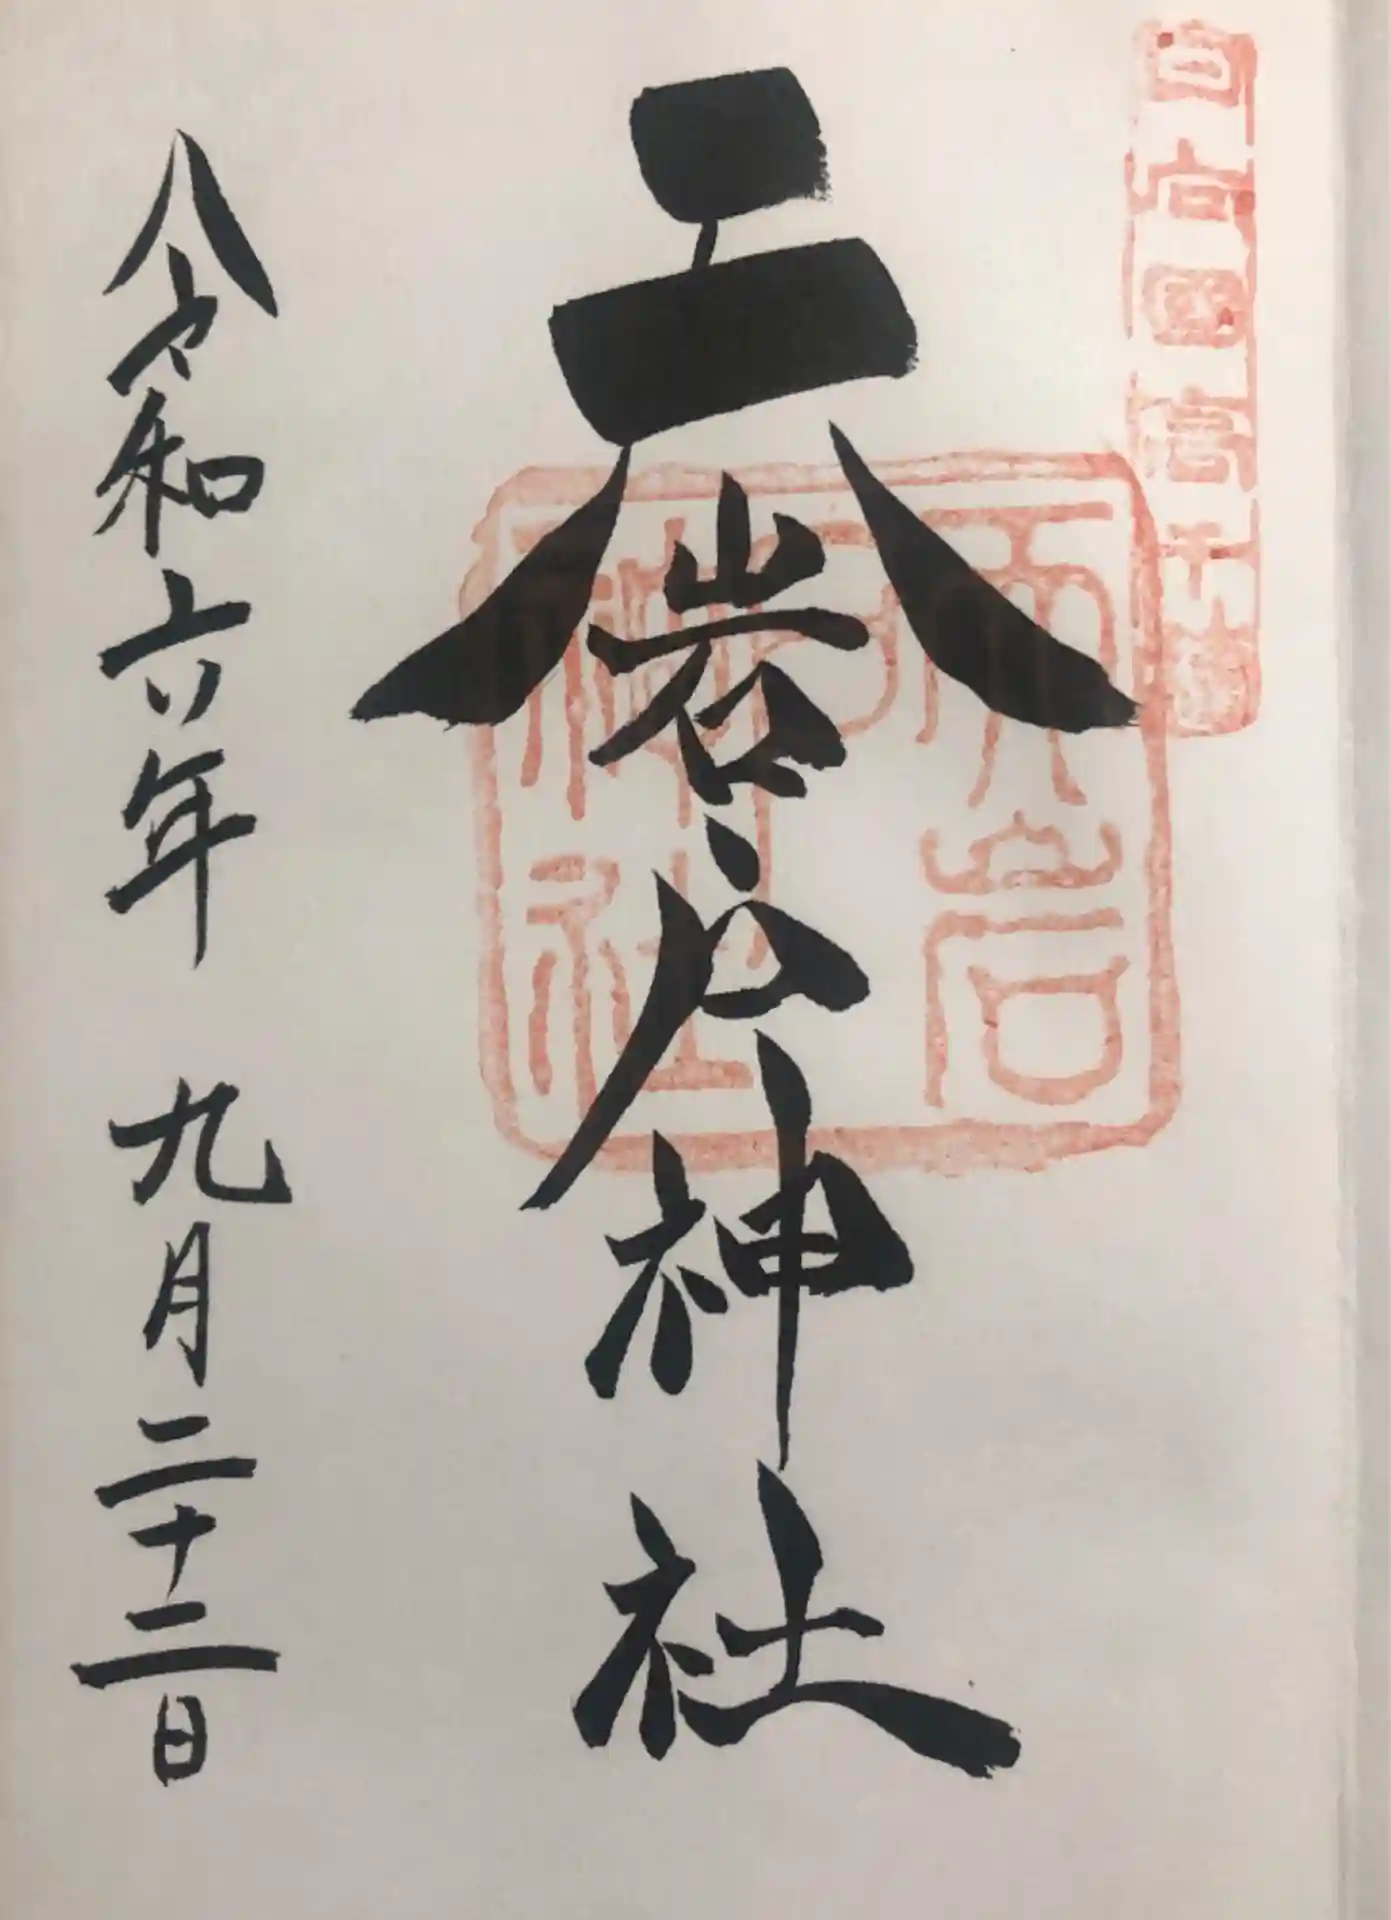 日向國高千穂
天岩戸神社
天岩戸神社
令和六年 九月二十二日